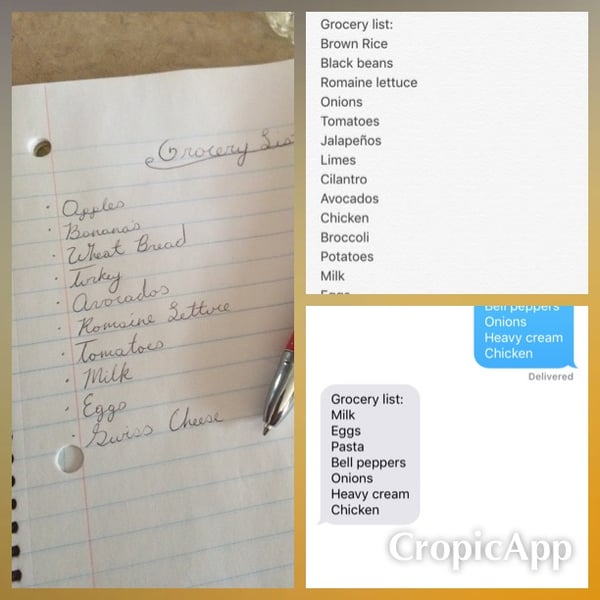 Grocery Lis
· Apples
· Bananas
· Wheat Bread
· Turkey
· Avocados
· Romaine Lettuce
· Tomatoes
· Milk
· Eggs
· Swiss Cheese
Grocery list:
Brown Rice
Black beans
Romaine lettuce
Onions
Tomatoes
Jalapeños
Limes
Cilantro
Avocados
Chicken
Broccoli
Potatoes
Milk
Eggs
Bell peppers
Onions
Heavy cream
Chicken
Delivered
Grocery list:
Milk
Eggs
Pasta
Bell peppers
Onions
Heavy cream
Chicken
CropicApp